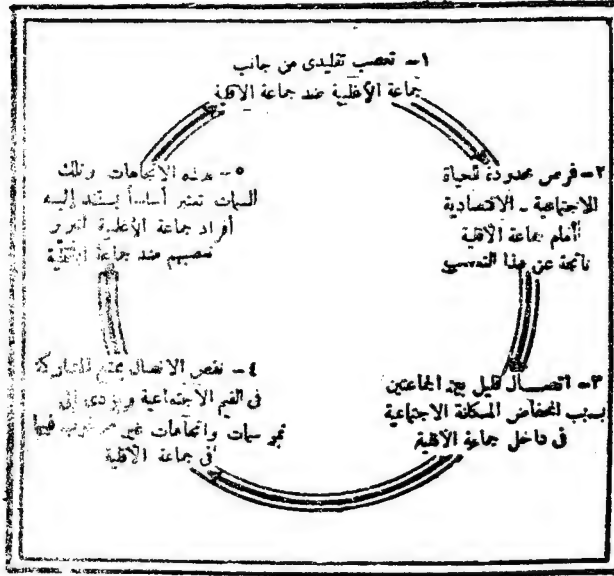 ١ــ تعصب تقليدى من جانب
جماعة الأغلبية ضد جماعة الاقلية
٢ــ فرص محدودة للحياة
الاجتماعية ـ الاقتصادية
أمام جماعة الأقلية
ناتجة عن هذا التعصب
٣ــ اتصــال قليل بين الجماعتين
بسبب انخفاض المكانة الاجتماعية
فى داخل جماعة الأقلية
٤ــ نقص الاتصال يمنع المشاركة
فى القيم الاجتماعية ويؤدى إلى
نمو سمات واتجاهات غير مرغوب فيها
فى جماعة الأقلية
٥ــ هذه الاتجاهات وتلك
السمات تعتبر أساساً يستند إليه
أفراد جماعة الأغلبية لتبرير
تعصبهم ضد جماعة الأقلية